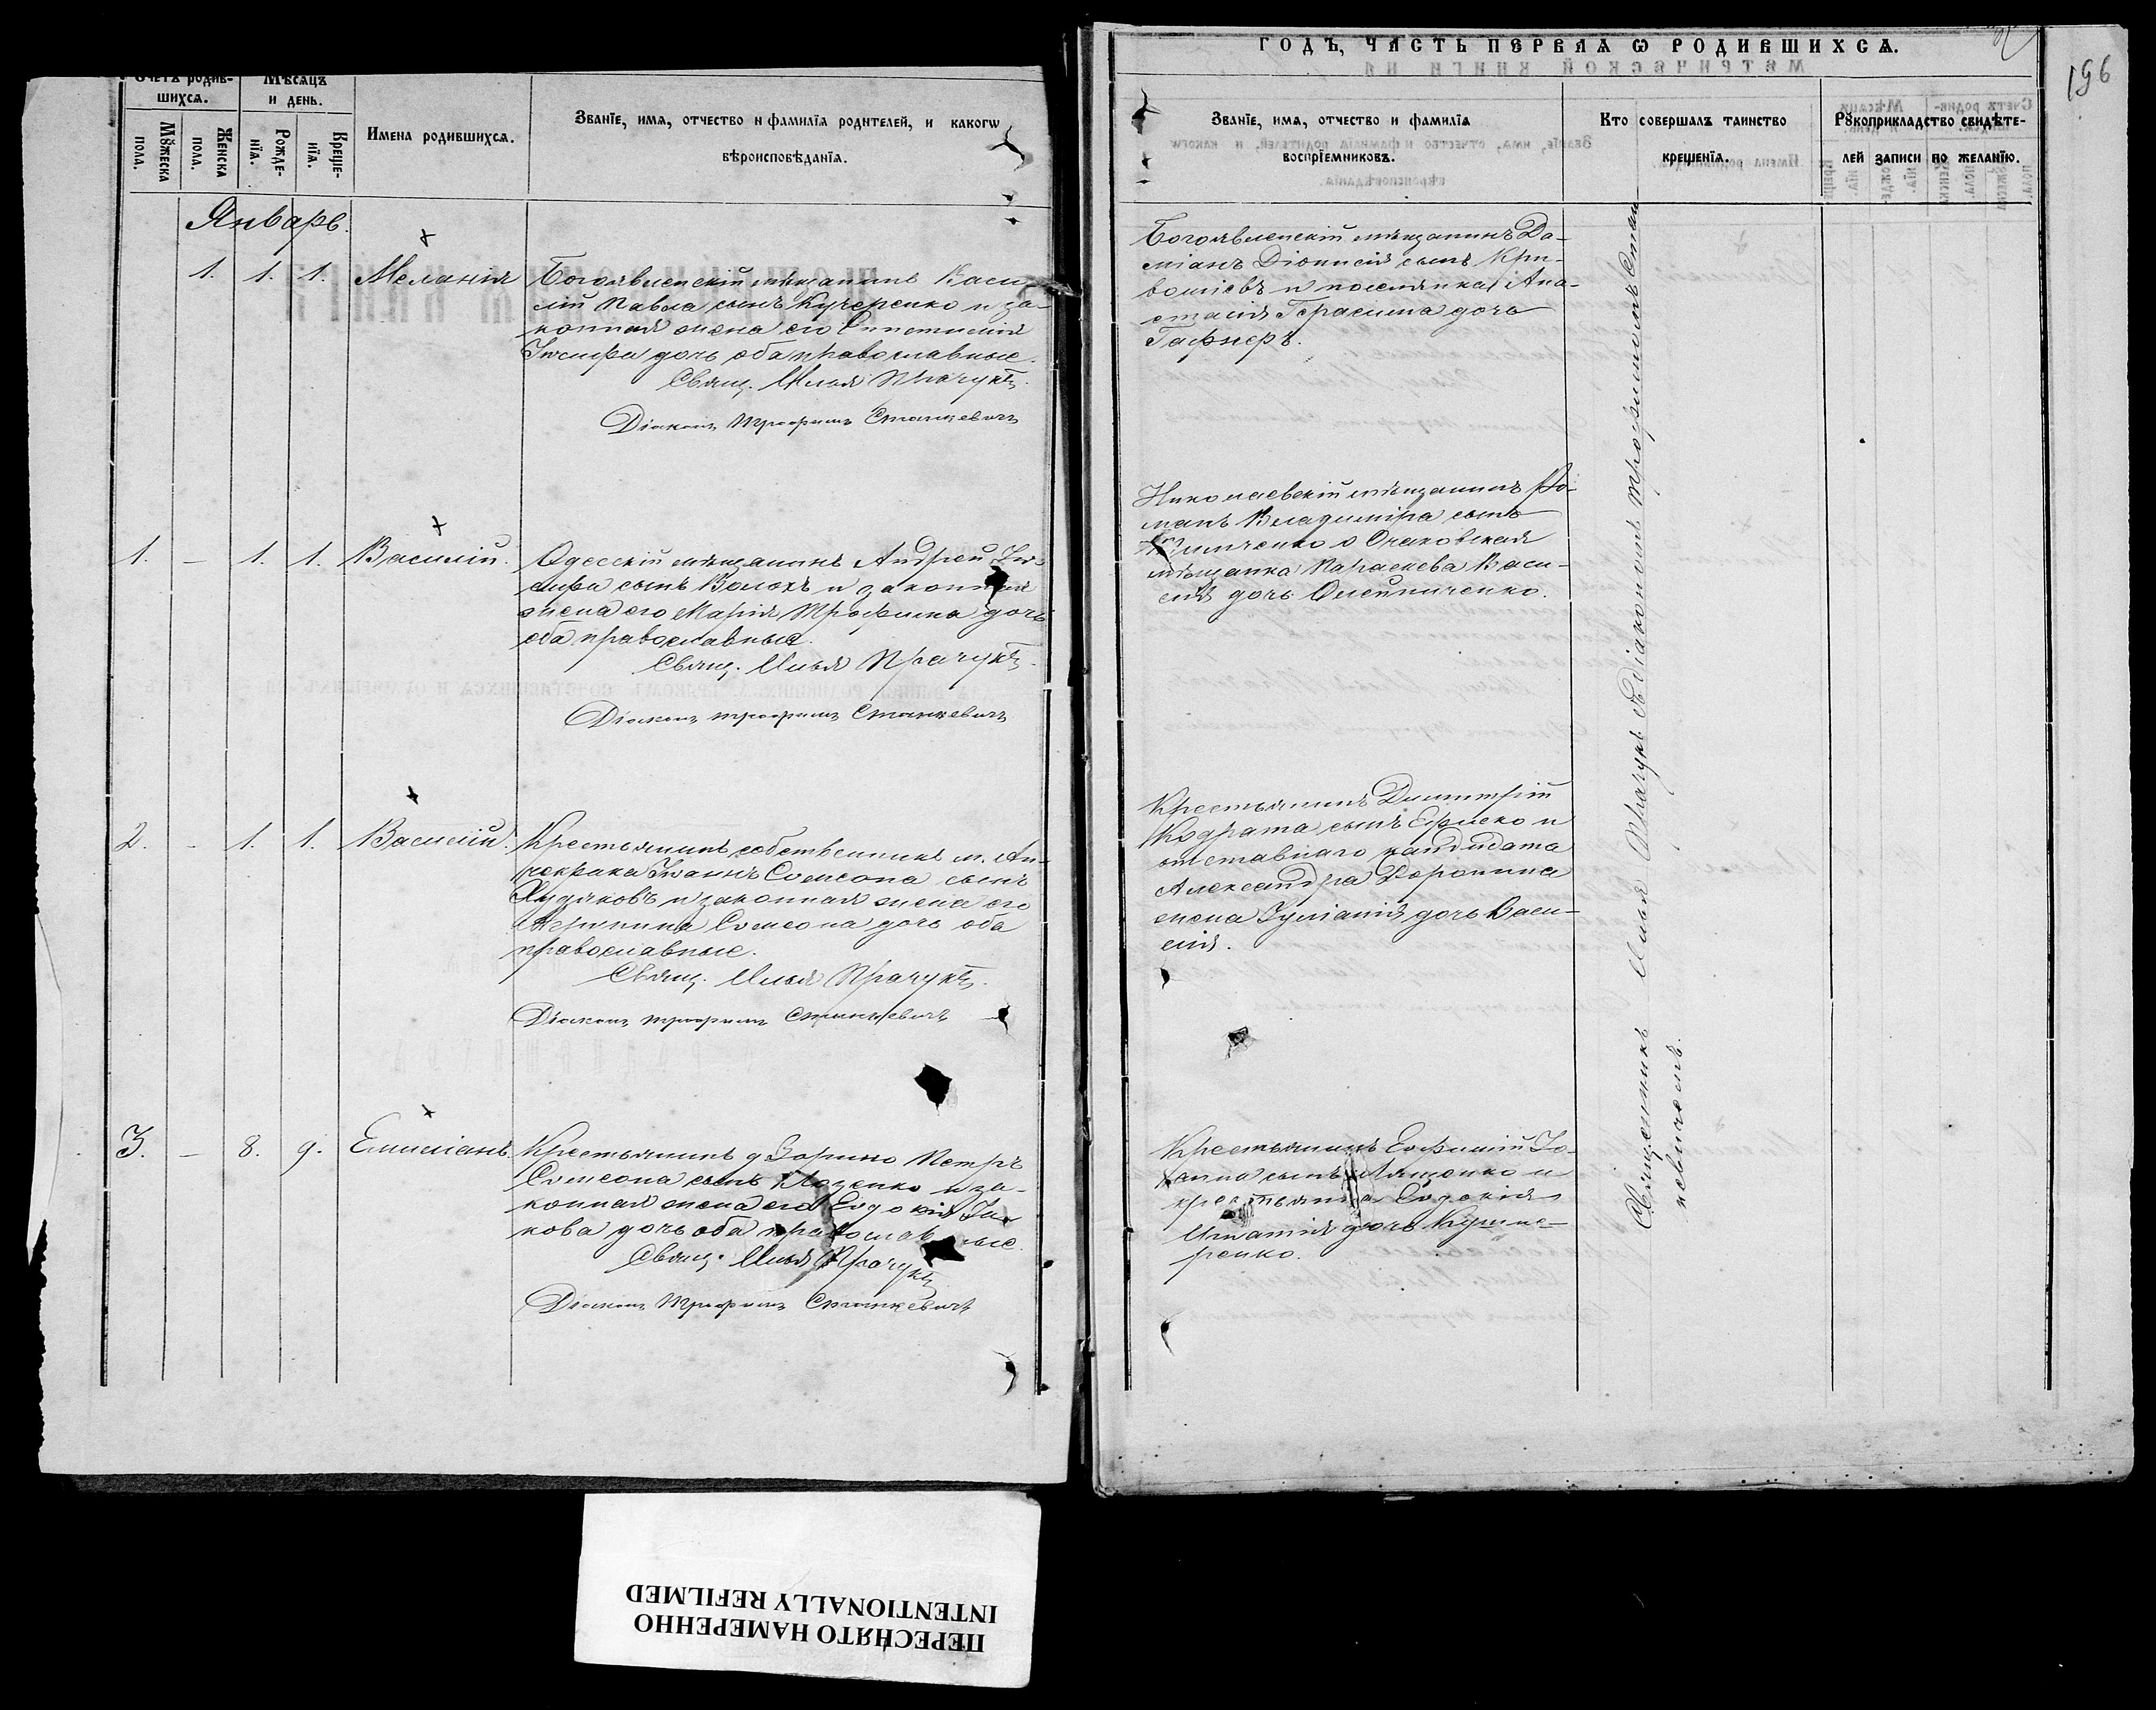 Счетъ родив-
шихсѧ.
Мѣсѧцъ
и день.
Мꙋжеска
пола.
Женска
пола.
Рожде-
нїѧ.
Креще-
нїѧ.
Имена родившихсѧ.
Званїе, имѧ, отчество и фамилїѧ родителей, и какогѡ
вѣроисповѣданїѧ.
Январь.
1. 1. 1. Меланія
Богоявленскій мѣщанинъ Васи-
лій Павла сынъ Кучеренко и за-
конная жена его
Іосифа дочь, оба православные.
Свящ. Илья Прачукъ.
Діаконъ Трофимъ Станкевичъ
1. – 1. 1. Василій.
Одесскій мѣщанинъ Андрей Іо-
сифа сынъ Волохъ и законная
жена его Марія Трофима дочь
оба православные.
Свящ. Илья Прачукъ.
Діаконъ Трофимъ Станкевичъ
2. - 1. 1. Василій.
Крестьянинъ собственникъ м. Ан-
чекрака Іоаннъ Самсона сынъ
Худяковъ и законная жена его
Самсона дочь оба
православные.
Свящ. Илья Прачукъ.
Діаконъ Трофимъ Станкевичъ
3. – 8. 9. Емиліанъ.
Крестьянинъ д. Зорино Петръ
Самсона сынъ и за-
конная жена его Евдокія Іа-
кова дочь оба православные.
Свящ. Илья Прачукъ
Діаконъ Трофимъ Станкевичъ
ГОДЪ, ЧАСТЬ ПЕРВАѦ Ѡ РОДИВШИХСѦ.
196
Званїе, имѧ, отчество и фамилїѧ
воспрїемниковъ.
Кто совершалъ таинство
крещенїѧ.
Рꙋкоприкладство свидѣте-
лей записи по желанїю.
Богоявленскій мѣщанинъ Да-
міанъ Діонисія сынъ Кри-
вошіевъ и поселянка Ана-
стасія Герасима дочь
Гафнеръ.
Николаевскій мѣщанинъ Ро-
манъ Владиміра сынъ
и Очаковская
мѣщанка Параскева Васи-
лія дочь Олейниченко.
Крестьянинъ Димитрій
Кодрата сынъ и
отставнаго кандидата
Александра Доронина
жена Іуліанія дочь Васи-
лія.
Крестьянинъ Евфимій Іо-
анна сынъ Лященко и
крестьянка Евдокія
Игнатія дочь Кушне-
ренко.
Священникъ Илья Прачукъ съ діакономъ Трофимомъ Стан-
кевичемъ.
ПЕРЕСНЯТО НАМЕРЕННО
INTENTIONALLY REFILMED